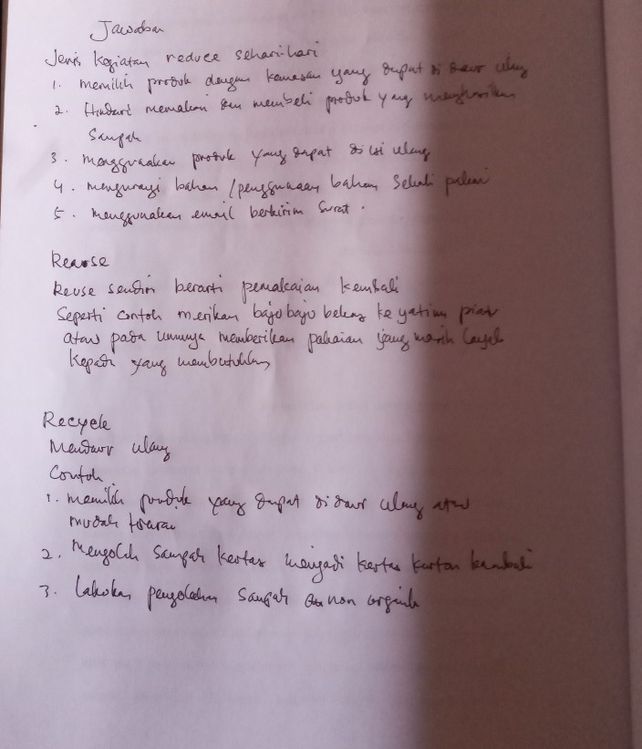 Jawaban
Jenis kegiatan reduce sehari-hari
1. memilih produk dengan kemasan yang dapat di daur ulang
2. Hindari memakai dan membeli produk yang menghasilkan
Sampah
3. menggunakan produk yang dapat di isi ulang
4. mengurangi bahan / penggunaan bahan Sekali pakai
5. menggunakan email berkirim Surat.
Reause
Reuse sendiri berarti pemakaian kembali
Seperti contoh merikan baju baju bekas ke yatim piatu
atau pada umumnya memberikan pakaian yang masih layak
kepada yang membutuhkan
Recycle
Mendaur ulang
Contoh.
1. memilih produk yang dapat di daur ulang atau
mudah terurai
2. Mengolah Sampah kertas menjadi kertas karton kembali
3. Lakukan pengolahan Sampah non organik